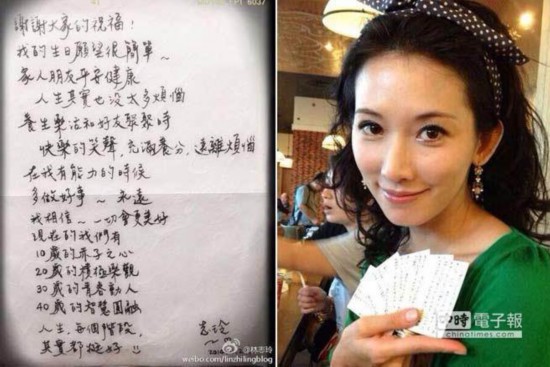 謝謝大家的祝福!
我的生日願望很簡單~
家人朋友平安健康
人生其實也沒太多煩惱
養生樂活和好友聚聚時
快樂的笑聲,充滿養分,遠離煩惱
在我有能力的時候
多做好事~永遠
我相信~一切會更美好
現在的我們有
10歲的赤子之心
20歲的積極樂觀
30歲的青春動人
40歲的智慧圓融
人生,每個階段,
其實都挺好
志玲
@林志玲
weibo.com/linzhilingblog
中時電子報
chinatimes.com